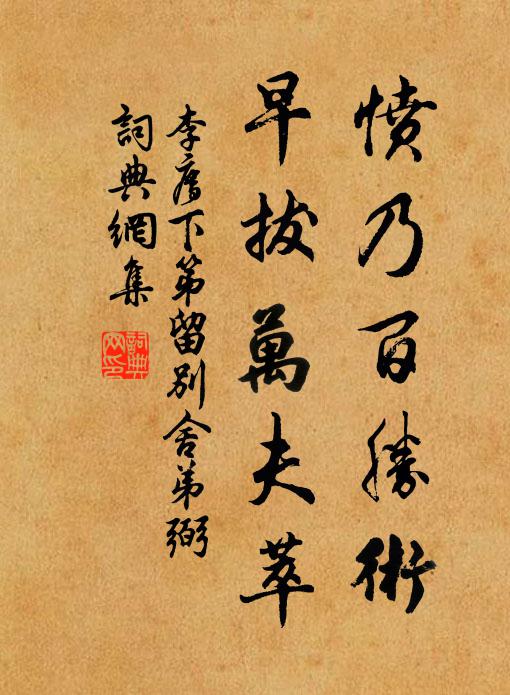 憤乃百勝術
早拔萬夫萃
李廌下第留別舍弟弼
詞典網集
詞典網印